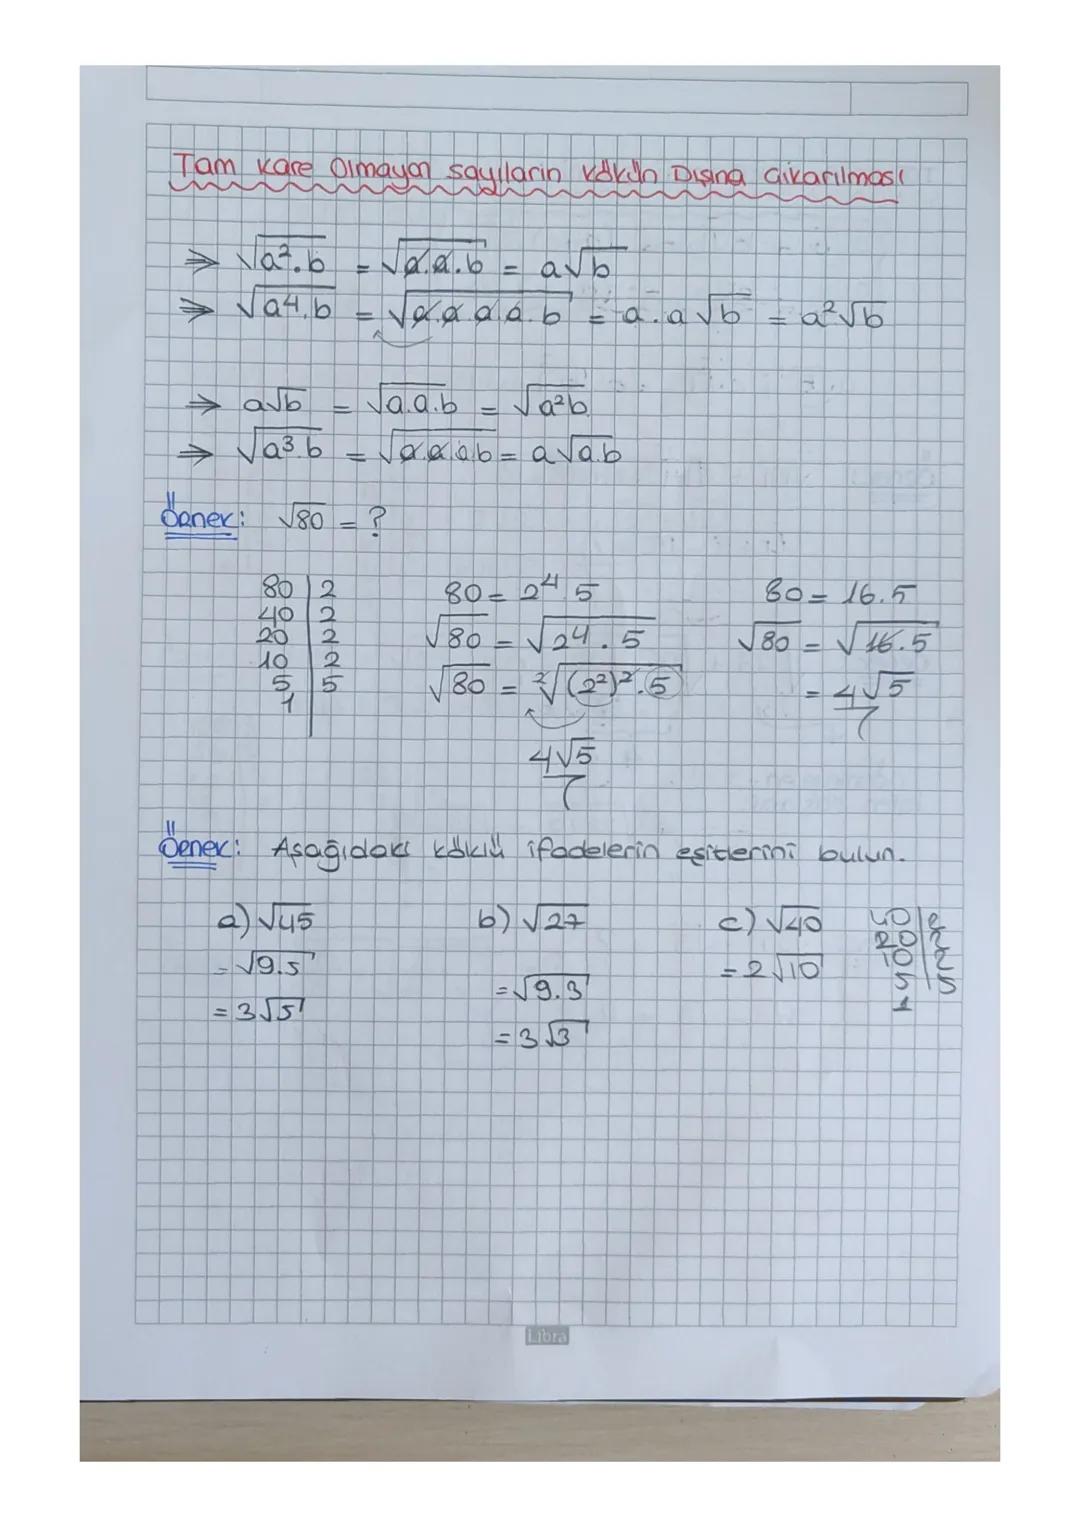 Tam kare Olmayan sayıların kökün Dışına Çıkarılması
⇒ √a².b = √a.a.b = a√b
⇒ √a⁴.b = √a.a.a.a.b = a.a√b = a²√b
⇒ a√b = √a.a.b = √a²b
⇒ √a³.b = √a.a.a.b = a√a.b
Örnek: √80 = ?
80 | 2
40 | 2
20 | 2
10 | 2
5 | 5
1
80 = 2⁴.5
√80 = √2⁴.5
√80 = ²√(2²)².5
4√5
80 = 16.5
√80 = √16.5
= 4√5
Örnek: Aşağıdaki köklü ifadelerin eşitlerini bulun.
a) √45
= √9.5
= 3√5
b) √27
= √9.3
= 3√3
c) √40
= 2√10
40 | 2
20 | 2
10 | 2
5 | 5
1
Libra